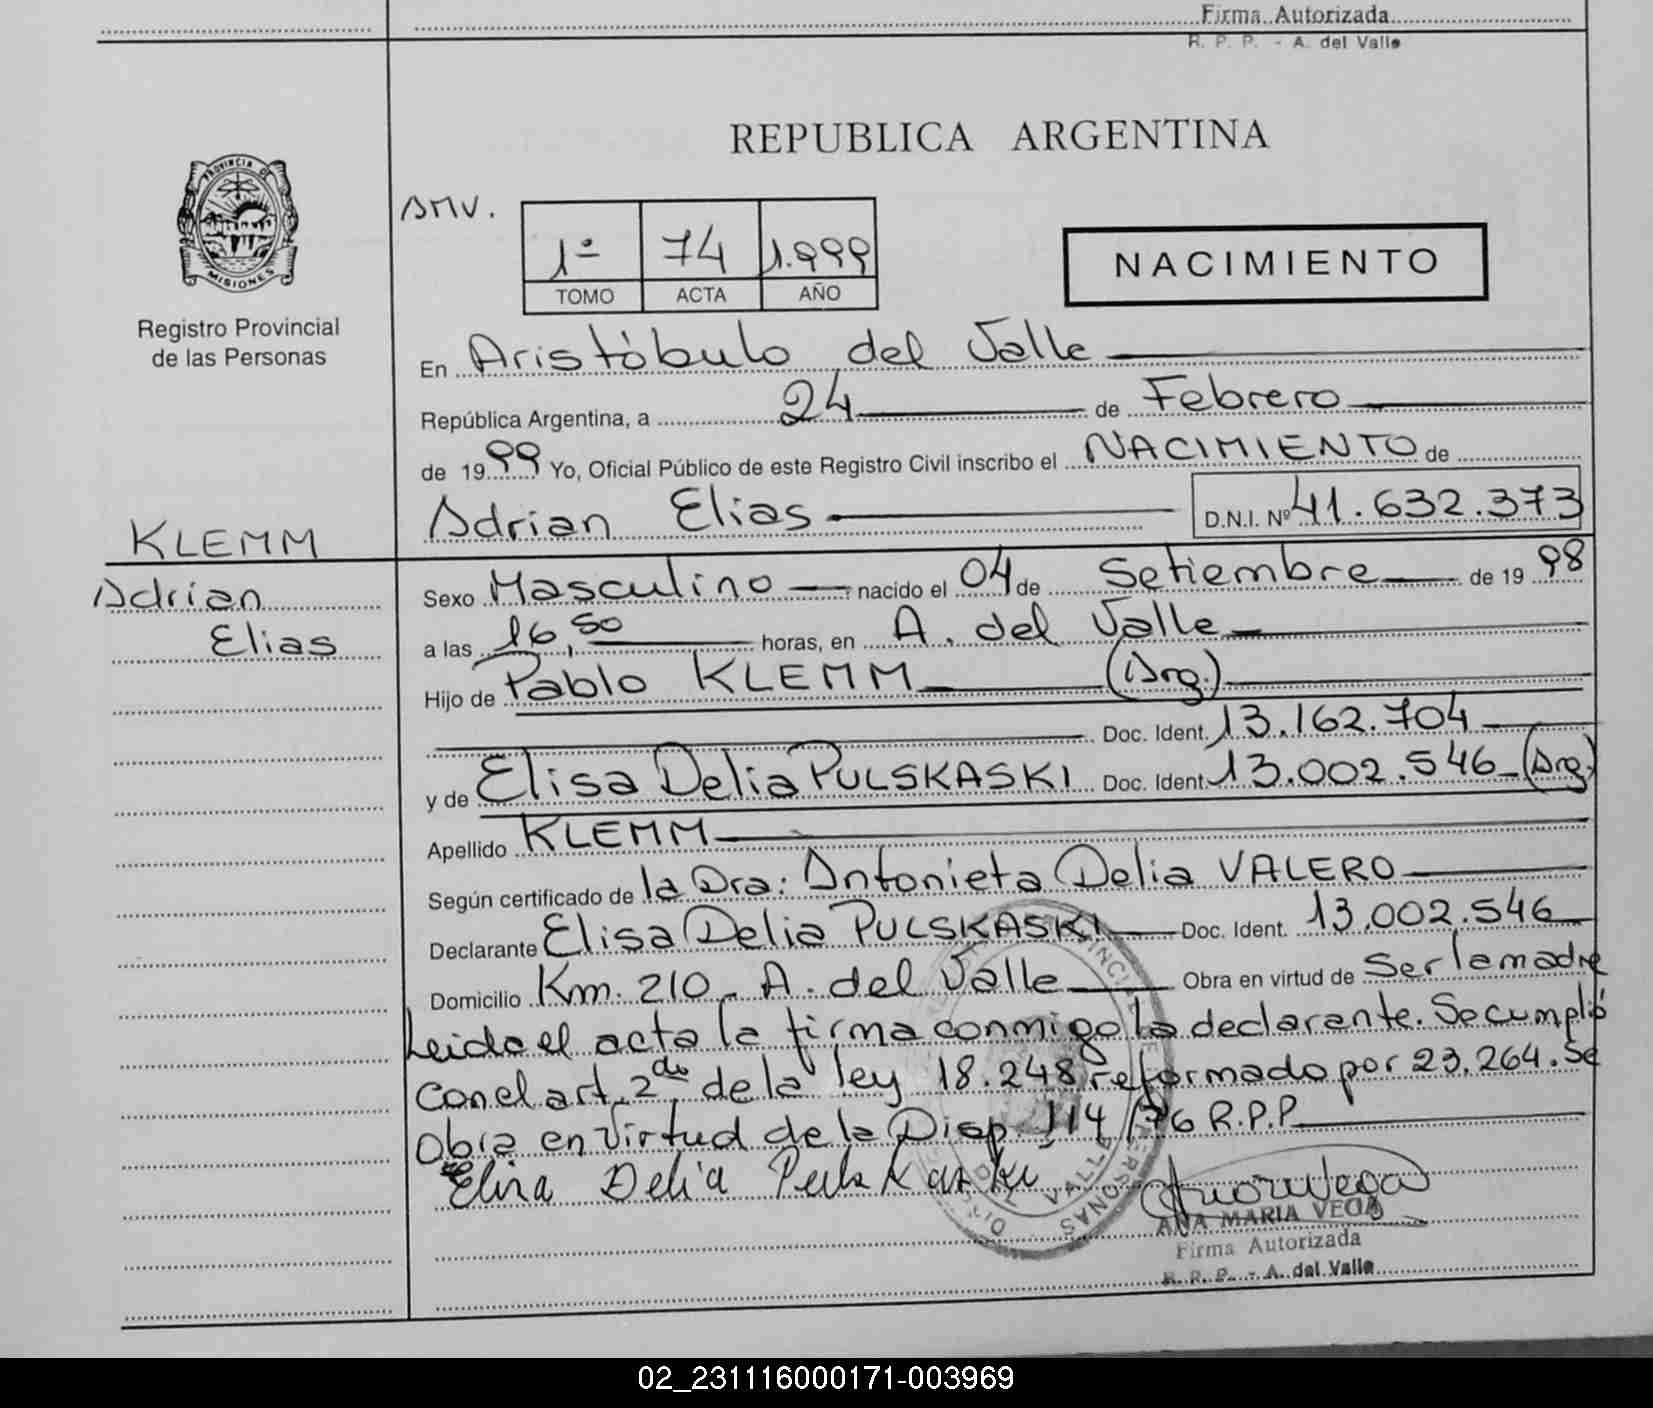 Firma Autorizada
R. P. P. - A. del Valle
REPUBLICA ARGENTINA
PROVINCIA DE
MISIONES
Registro Provincial
de las Personas
AMV.
1º 74 1.999
TOMO ACTA AÑO
NACIMIENTO
En Aristóbulo del Valle
República Argentina, a 24 de Febrero
de 1999 Yo, Oficial Público de este Registro Civil inscribo el NACIMIENTO de
Adrian Elias D.N.I. Nº 41.632.373
KLEMM
Adrian
Elias
Sexo Masculino nacido el 04 de Setiembre de 1998
a las 16,50 horas, en A. del Valle
Hijo de Pablo KLEMM (Arg.)
Doc. Ident. 13.162.704
y de Elisa Delia PULSKASKI Doc. Ident. 13.002.546 (Arg.)
Apellido KLEMM
Según certificado de la Dra: Antonieta Delia VALERO
Declarante Elisa Delia PULSKASKI Doc. Ident. 13.002.546
Domicilio Km. 210 - A. del Valle Obra en virtud de Ser la madre
Leida el acta la firma conmigo la declarante. Se cumplió
con el art. 2do de la ley 18.248 reformado por 23.264. Se
Obra en virtud de la Disp. 114/76 R.P.P.
Elisa Delia Pulskaski
ANA MARIA VEGA
Firma Autorizada
R. P. P. - A. del Valle
02_231116000171-003969